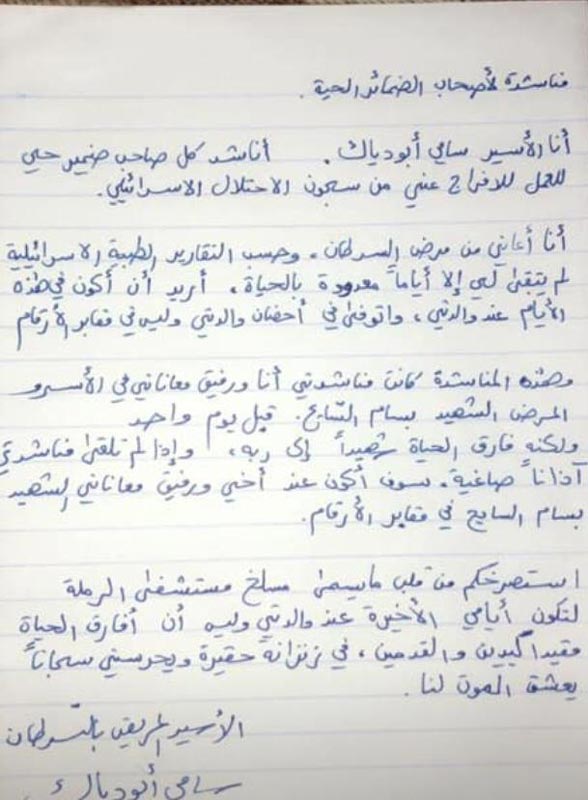 مناشدة لأصحاب الضمائر الحية .
أنا الأسير سامي أبودياك . أناشد كل صاحب ضمير حي
للعمل للافراج عني من سجون الاحتلال الاسرائيلي .
أنا أعاني من مرض السرطان . وحسب التقارير الطبية الاسرائيلية
لم يتبقى لي إلا أياماً معدودة بالحياة ، أريد أن أكون في هذه
الأيام عند والدتي ، واتوفى في أحضان والدتي وليس في مقابر الأرقام
وهذه المناشدة كانت مناشدتي أنا ورفيق معاناتي في الأسر و
المرض الشهيد بسام السّايح . قبل يوم واحد
ولكنه فارق الحياة شهيداً إلى ربه ، وإذا لم تلقى مناشدتي
آذاناً صاغية . سوف أكون عند أخي ورفيق معاناتي الشهيد
بسام السايح في مقابر الأرقام .
استصرخكم من قلب مايسمى مسلخ مستشفى الرملة
لتكون أيامي الأخيرة عند والدتي وليس أن أفارق الحياة
مقيد اليدين والقدمين ، في زنزانة حقيرة ويحرسني سجاناً
يعشق الموت لنا .
الأسير المريض بالسّرطان
سامي أبودياك